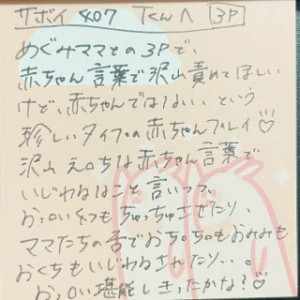 サボイ 407 Tくんへ 3P
めぐみママとの3Pで、
赤ちゃん言葉で沢山責めてほしい
けど、赤ちゃんではない、という
珍しいタイプの赤ちゃんプレイ♡
沢山えっちな赤ちゃん言葉で
いじわるなこと言いつつ、
おっぱいをちゅっちゅさせたり、
ママたちの舌でおちんちんもおみみも
おくちもいじわるされたり...。
おっぱい堪能しきったかな?♡